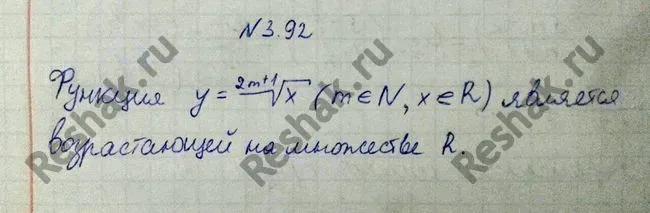 N3.92
Функция y = \sqrt[2m+1]{x} (m∈N, x∈R) является
возрастающей на множестве R.
Reshak.ru
Reshak.ru
Reshak.ru
Reshak.ru